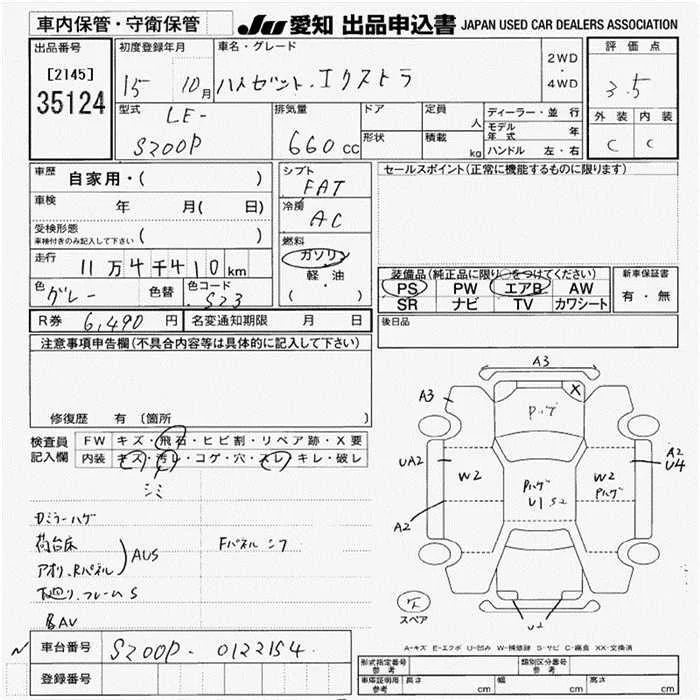 車内保管・守衛保管
JU 愛知 出品申込書 JAPAN USED CAR DEALERS ASSOCIATION
出品番号
[2145]
35124
初度登録年月
15 10月
車名・グレード
ハイゼット・エクストラ
2WD
・
4WD
評価点
3.5
外装 内装
C C
型式
LE-
S200P
排気量
660 cc
ドア
形状
定員
人
積載
kg
ディーラー・並行
モデル年式 年
ハンドル 左・右
車歴
自家用・( )
車検
年 月( 日)
受検形態
車検付きのみ記入して下さい ( )
走行
11万4千410km
色
グレー
色替
色コード
S23
シフト
FAT
冷房
AC
燃料
ガソリン
軽・油
( )
セールスポイント(正常に機能するものに限ります)
装備品(純正品に限り○をつけてください)
PS PW エアB AW
SR ナビ TV カワシート
新車保証書
有・無
R券 6,490 円
名変通知期限 月 日
後日品
注意事項申告欄(不具合内容等は具体的に記入して下さい)
修復歴 有 (箇所
検査員
記入欄
FW キズ・飛石・ヒビ割・リペア跡・X要
内装 キズ・汚レ・コゲ・穴・スレ・キレ・破レ
シミ
ドミラーハゲ
荷台床
アオリ、Rパネル
AUS
Fパネルシワ
下廻り、フレームS
各AV
A3
A3
X
Pハゲ
UA2
W2
Pハゲ
U1 S2
W2
Pハゲ
A2
U4
A2
U2
スペア
A-キズ E-エクボ U-凹み W-補修跡 S-サビ C-腐食 XX-交換済
車台番号
S200P-0122154
登録番号
型式指定番号
参考
類別区分番号
参考
車庫証明用
参考
長さ cm
幅 cm
高さ cm